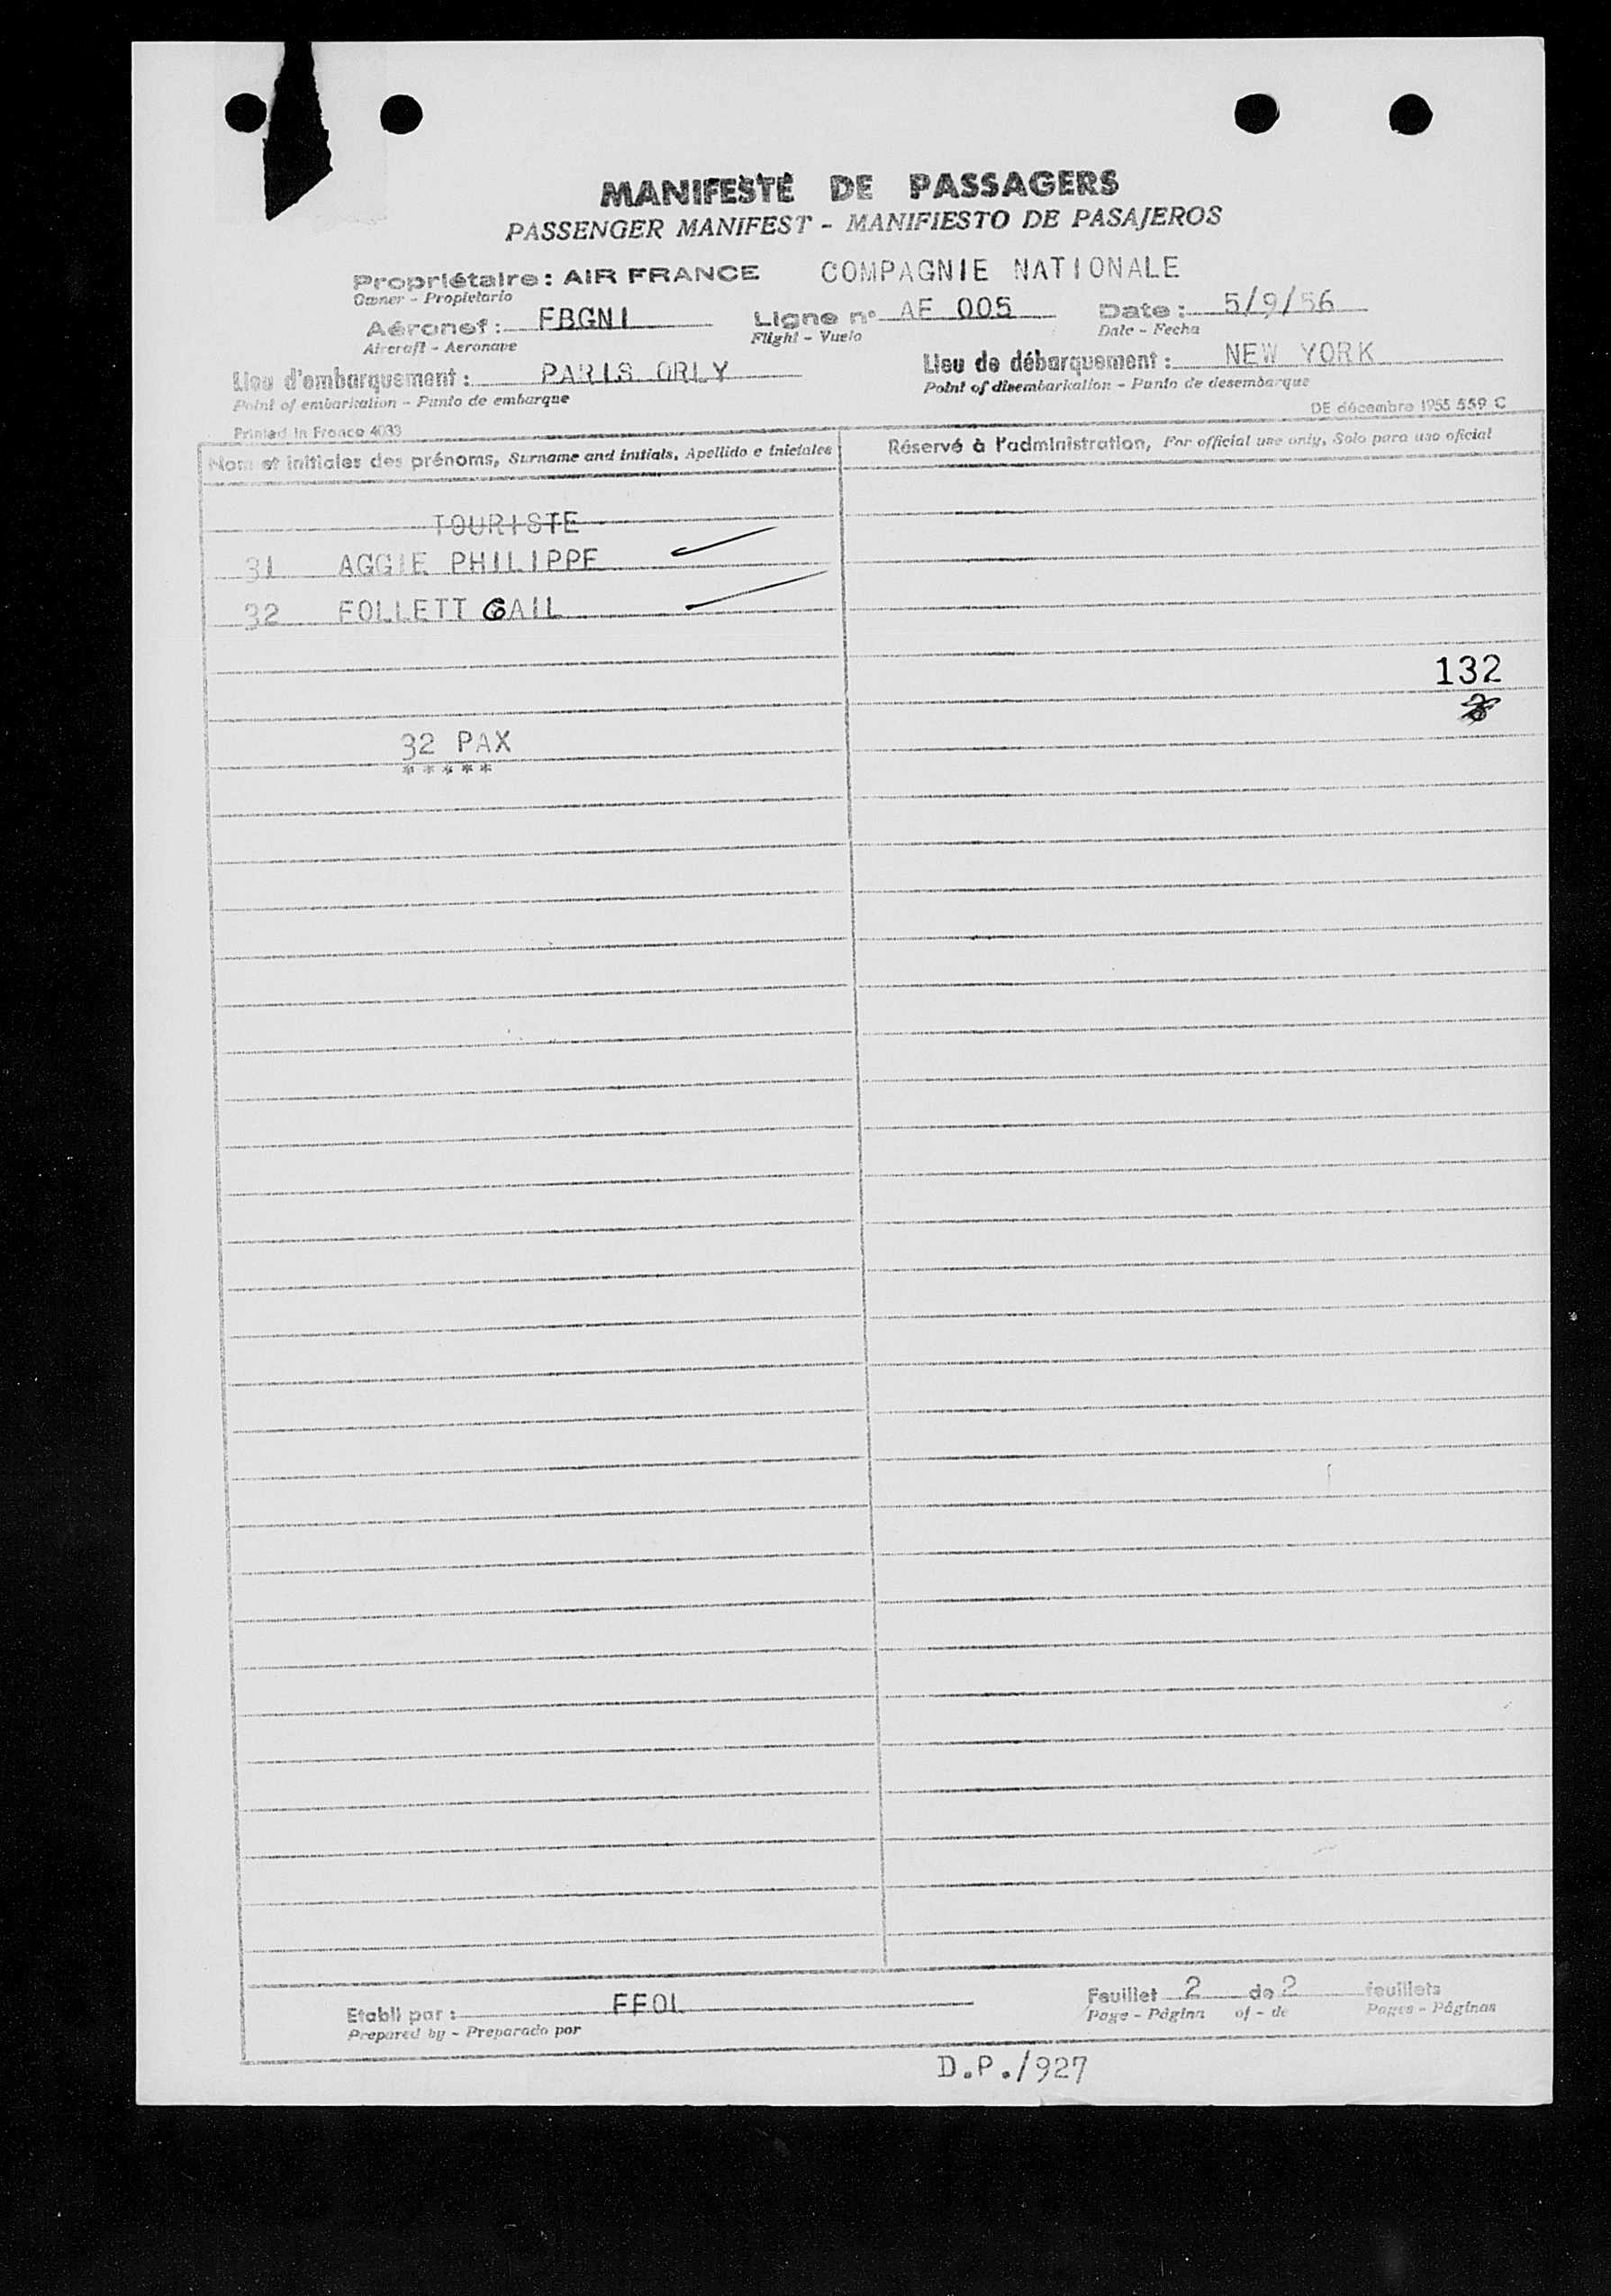 MANIFESTE DE PASSAGERS
PASSENGER MANIFEST - MANIFIESTO DE PASAJEROS
Propriétaire : AIR FRANCE COMPAGNIE NATIONALE
Owner - Propietario
Aéronef : FBGNI Ligne n° AF 005 Date : 5/9/56
Aircraft - Aeronave Flight - Vuelo Date - Fecha
Lieu d'embarquement : PARIS ORLY Lieu de débarquement : NEW YORK
Point of embarkation - Punto de embarque Point of disembarkation - Punto de desembarque
Printed in France 4033 DE décembre 1955 559 C
Nom et initiales des prénoms, Surname and initials, Apellido e iniciales Réservé à l'administration, For official use only, Solo para uso oficial
TOURISTE
31 AGGIE PHILIPPE
32 FOLLETT GAIL
132
32 PAX
*****
Etabli par : FFOL Feuillet 2 de 2 feuillets
Prepared by - Preparado por Page - Página of - de Pages - Páginas
D.P./927